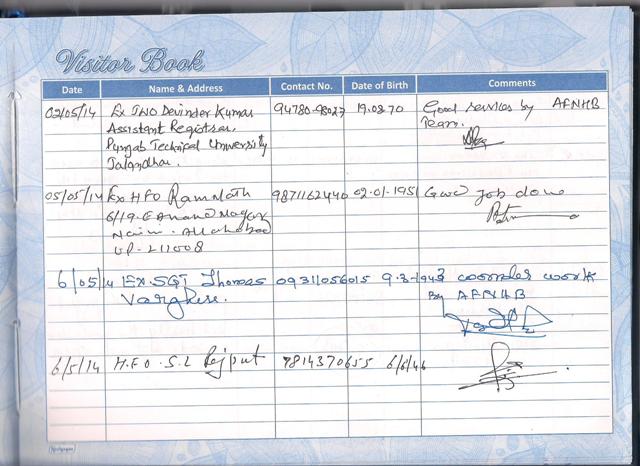 Visitor Book
Date Name & Address Contact No. Date of Birth Comments
02/05/14 Ex JWO Devinder Kumar 94780-98027 19.08.70 Good services by AFNHB
Assistant Registrar, Team.
Punjab Technical University
Jalandhar.
05/05/14 Ex HFO Ram Nath 9871162440 02-01-1951 Good job done
6/19-E Anand Nagar
Naini - Allahabad
UP - 211008
6/05/14 Ex. SGT Thomas 09311056015 9-3-1943 work
Varghese. By AFNHB
6/5/14 H.F.O. S.L Rajput 7814370655 6/6/46